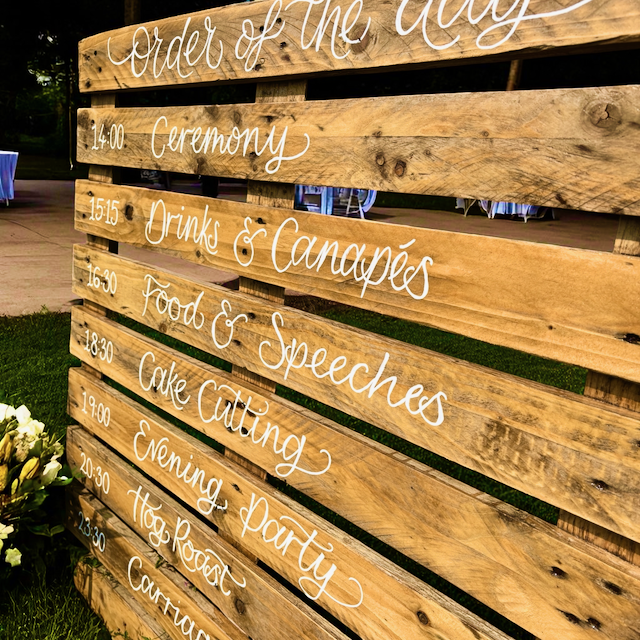 Order of the Day
14:00 Ceremony
15:15 Drinks & Canapés
16:30 Food & Speeches
18:30 Cake Cutting
19:00 Evening Party
20:30 Hog Roast
23:30